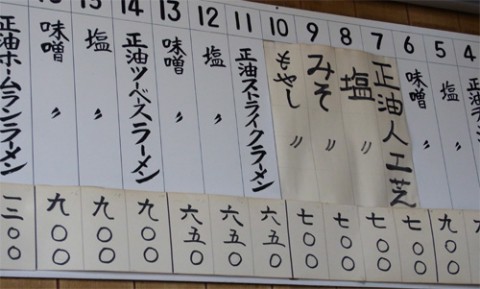 4
正油ラ
5
塩 〃
6
味噌 〃
九〇〇
7
正油人工芝
七〇〇
8
塩 〃
七〇〇
9
みそ 〃
七〇〇
10
もやし 〃
七〇〇
11
正油ストライクラーメン
六五〇
12
塩 〃
六五〇
13
味噌 〃
六五〇
14
正油ツーベースラーメン
九〇〇
塩 〃
九〇〇
味噌 〃
九〇〇
正油ホームランラーメン
一二〇〇